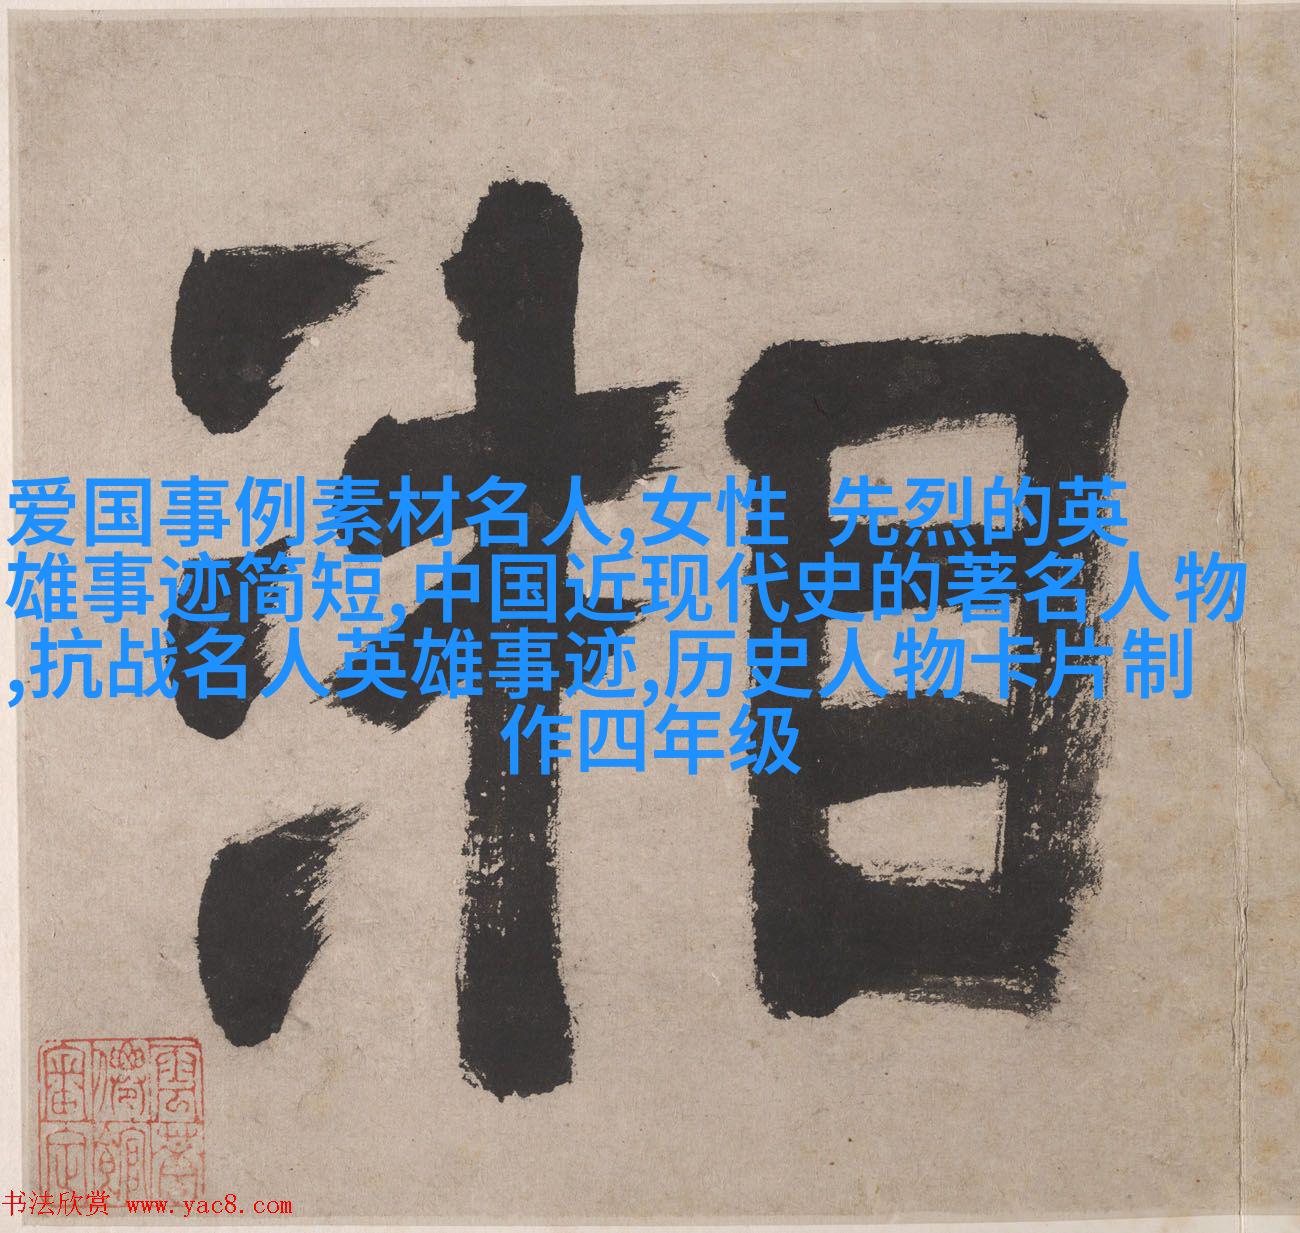 湘
爱国事例素材名人,女性 先烈的英
雄事迹简短,中国近现代史的著名人物
,抗战名人英雄事迹,历史人物卡片制
作四年级
审定
书法欣赏 www.yac8.com